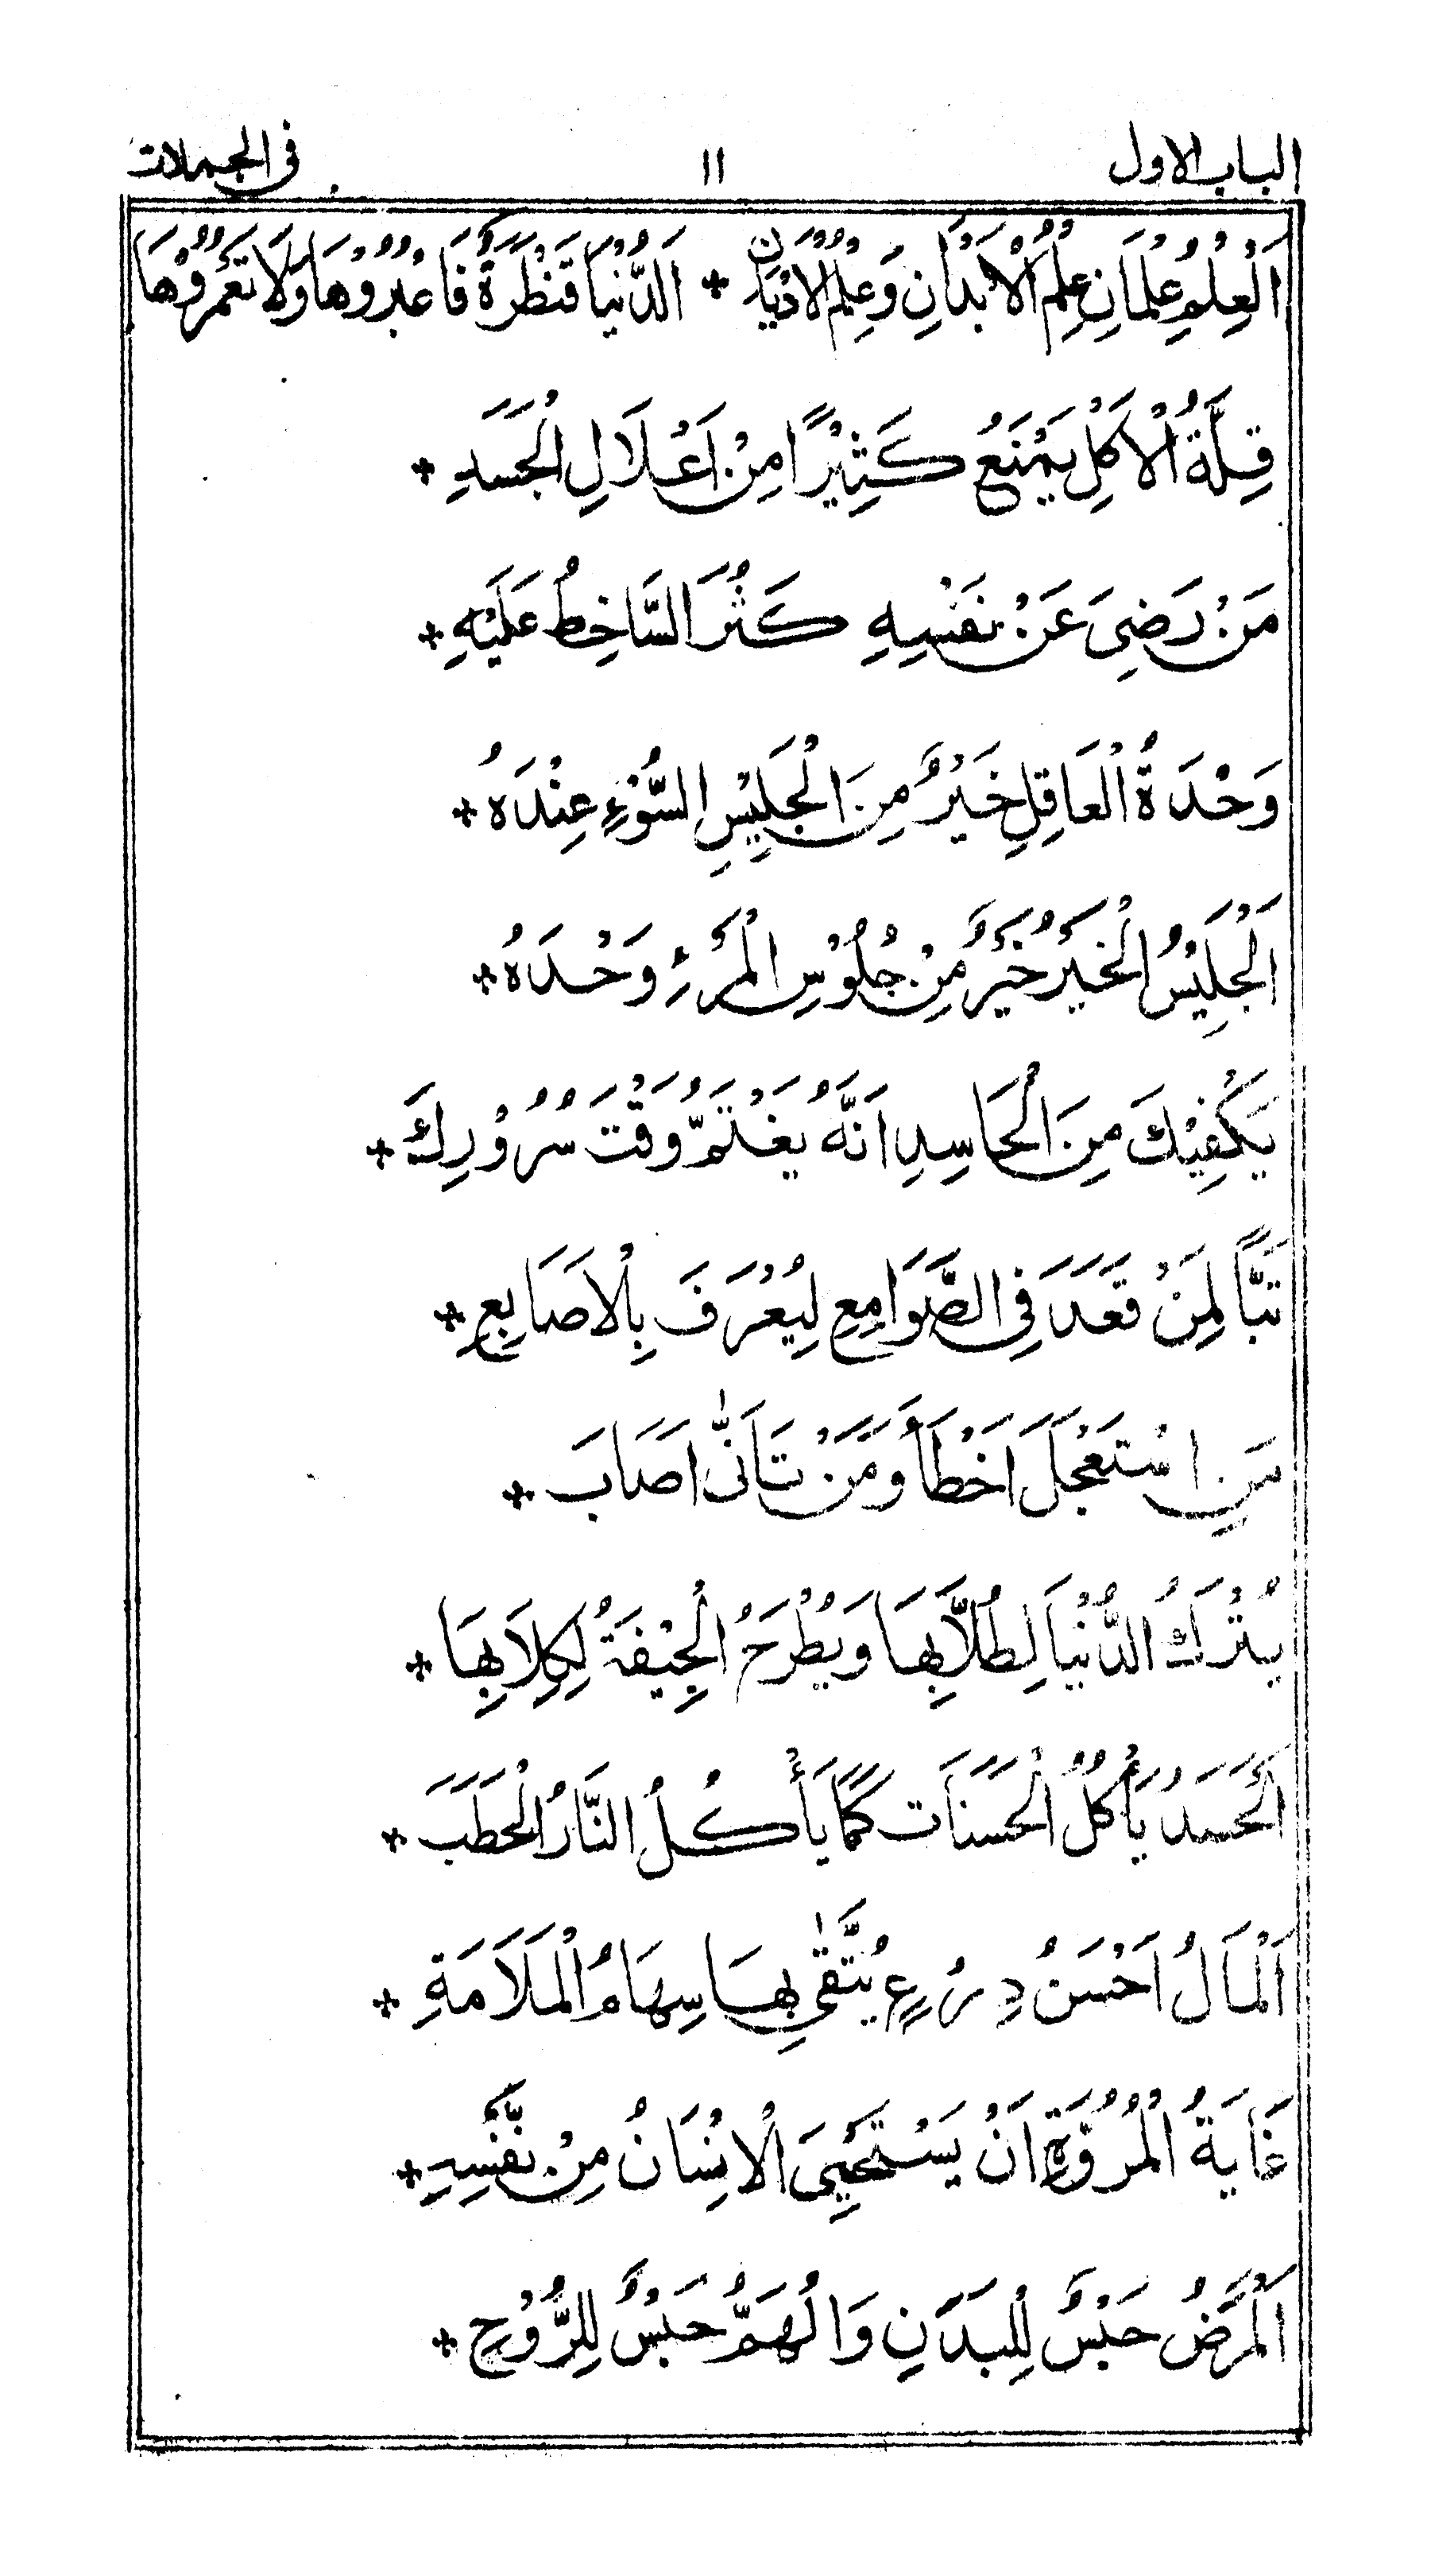 الباب الاول ١١ فى الجملات
اَلْعِلْمُ عِلْمَانِ عِلْمُ الْاَبْدَانِ وَعِلْمُ الْاَدْيَانِ * اَلدُّنْيَا قَنْطَرَةٌ فَاعْبُرُوْهَا وَلَا تَعْمُرُوْهَا
قِلَّةُ الْاَكْلِ يَمْنَعُ كَثِيْرًا مِنْ اَعْلَالِ الْجَسَدِ *
مَنْ رَضِىَ عَنْ نَفْسِهٖ كَثُرَ السَّاخِطُ عَلَيْهِ *
وَحْدَةُ الْعَاقِلِ خَيْرٌ مِنَ الْجَلِيْسِ السُّوْءِ عِنْدَهُ *
اَلْجَلِيْسُ الْخَيْرُ خَيْرٌ مِنْ جُلُوْسِ الْمَرْءِ وَحْدَهُ *
يَكْفِيْكَ مِنَ الْحَاسِدِ اَنَّهُ يَغْتَمُّ وَقْتَ سُرُوْرِكَ *
تَبًّا لِمَنْ قَعَدَ فِى الصَّوَامِعِ لِيُعْرَفَ بِالْاَصَابِعِ *
مَنِ اسْتَعْجَلَ اَخْطَأَ وَمَنْ تَاَنّٰى اَصَابَ *
يُتْرَكُ الدُّنْيَا لِطُلَّابِهَا وَيُطْرَحُ الْجِيْفَةُ لِكِلَابِهَا *
اَلْحَسَدُ يَأْكُلُ الْحَسَنَاتِ كَمَا يَأْكُلُ النَّارُ الْحَطَبَ *
اَلْمَالُ اَحْسَنُ دِرْعٍ يُتَّقٰى بِهَا سِهَامُ الْمَلَامَةِ *
غَايَةُ الْمُرُوَّةِ اَنْ يَسْتَحْيِىَ الْاِنْسَانُ مِنْ نَفْسِهِ *
اَلْمَرَضُ حَبْسٌ لِلْبَدَنِ وَالْهَمُّ حَبْسٌ لِلرُّوْحِ *